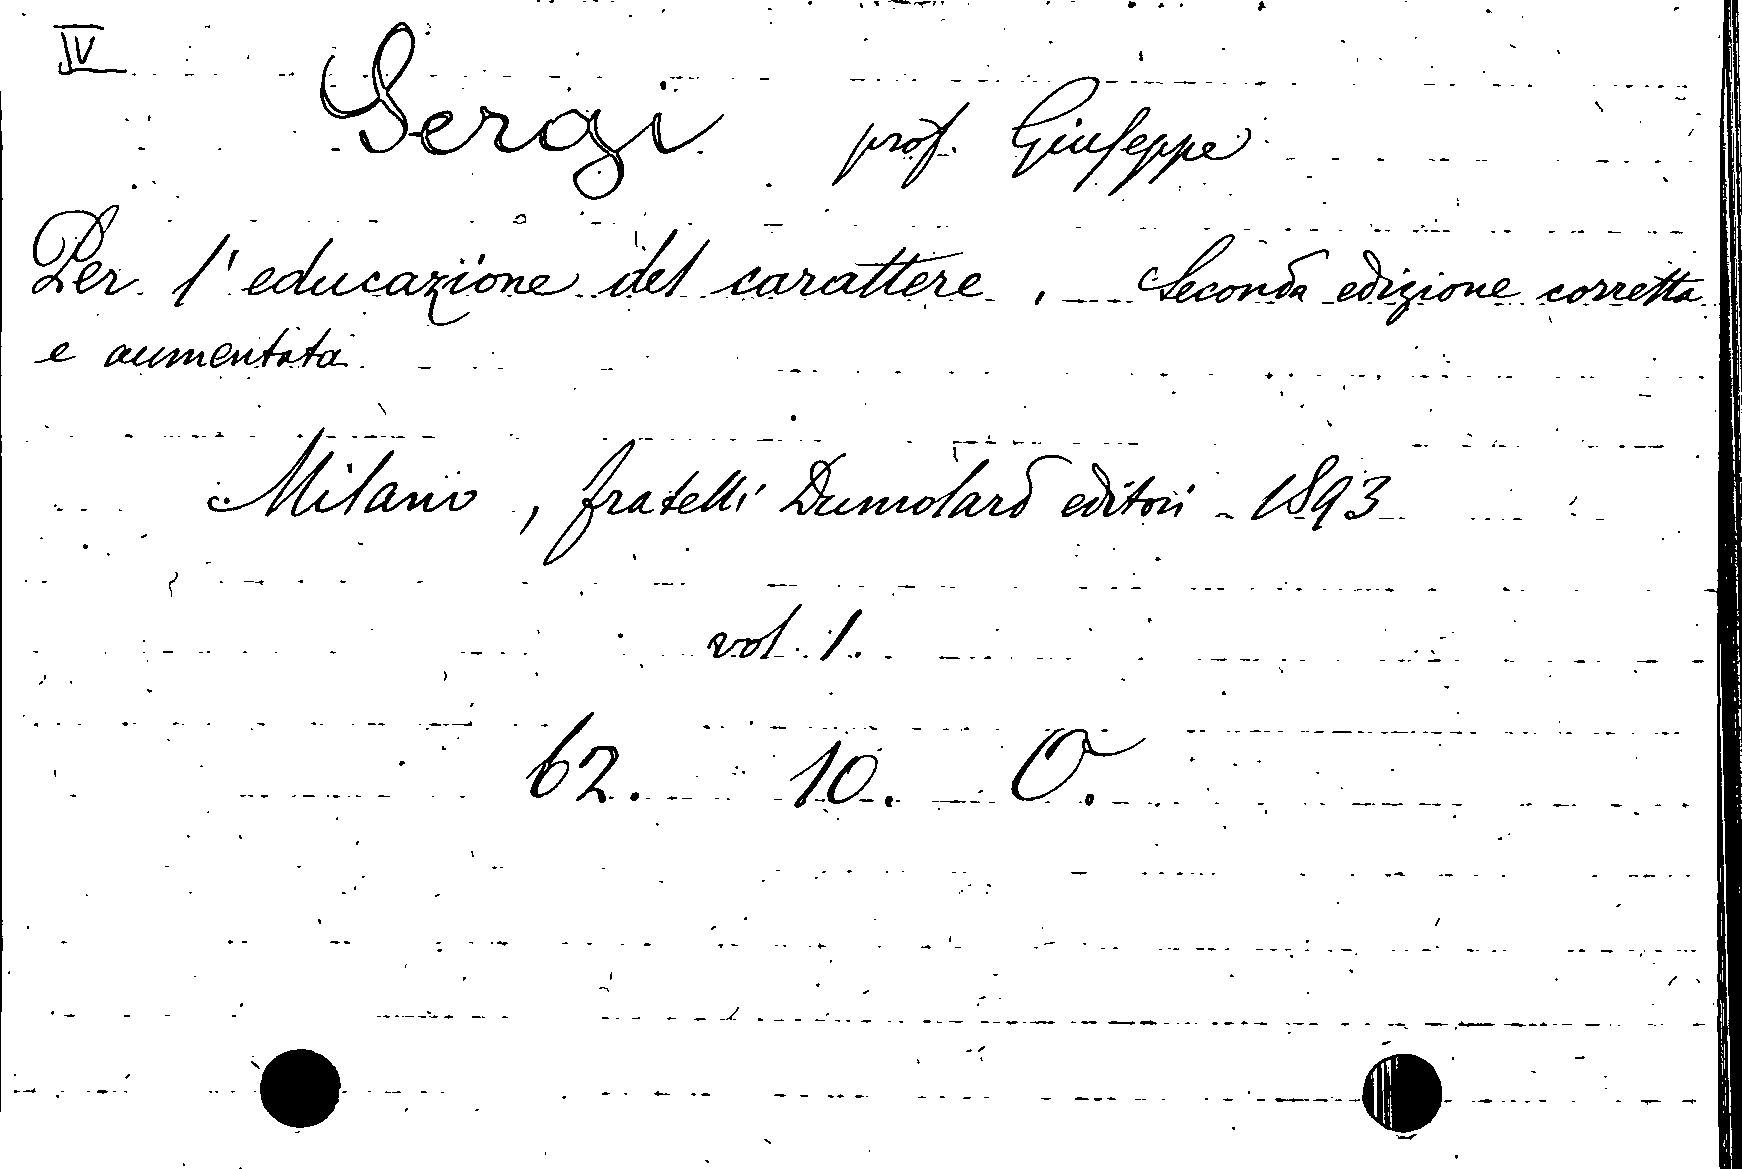 IV
Sergi prof. Giuseppe
Per l'educazione del carattere. Seconda edizione corretta
e aumentata
Milano, fratelli Dumolard editori - 1893
vol. 1.
62. 10. O.